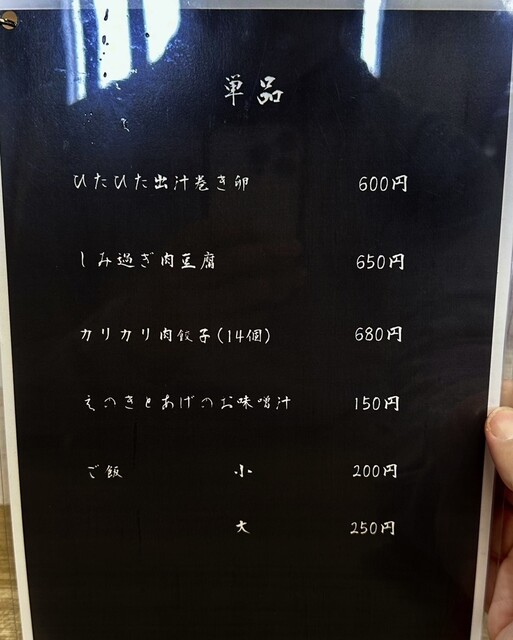 単品
ひたひた出汁巻き卵 600円
しみ過ぎ肉豆腐 650円
カリカリ肉餃子(14個) 680円
えのきとあげのお味噌汁 150円
ご飯 小 200円
大 250円